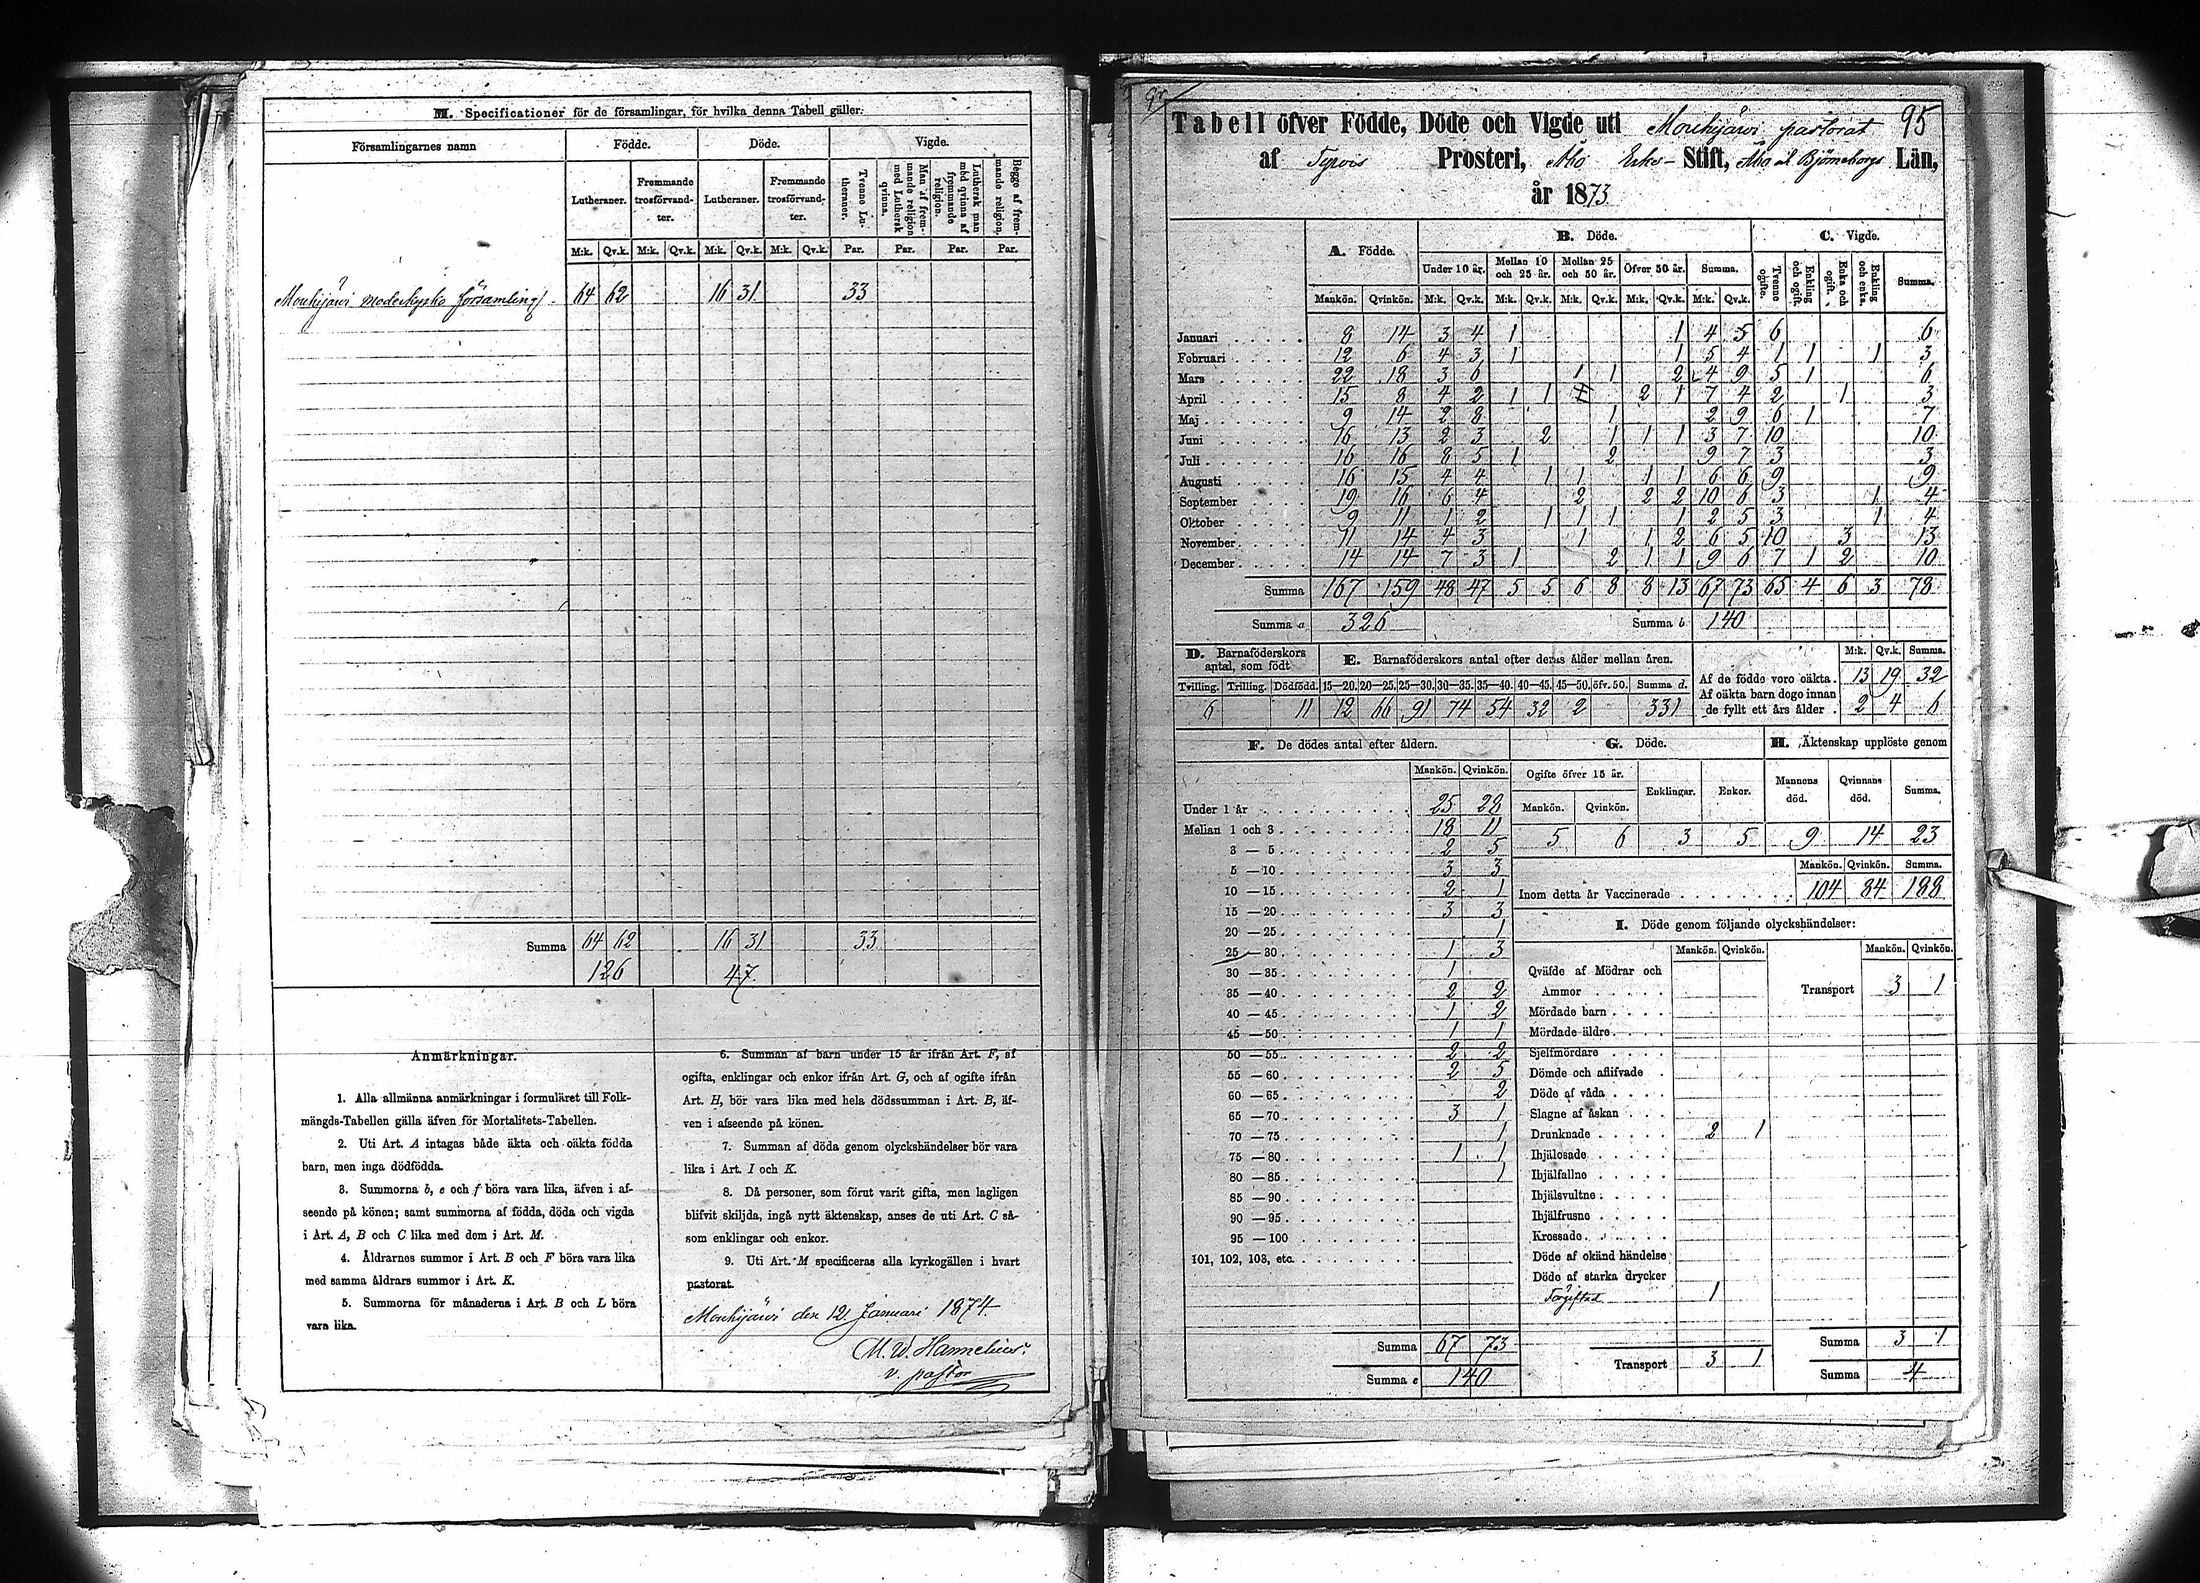 M. Specificationer för de församlingar, för hvilka denna Tabell gäller:
Församlingarnes namn Födde. Döde. Vigde.
Lutheraner. Fremmande trosförvandter. Lutheraner. Fremmande trosförvandter. Tvenne Lutheraner. Man af fremmande religion med Luthersk qvinna. Luthersk man med qvinna af fremmande religion. Begge af fremmande religion.
M:k. Qv.k. M:k. Qv.k. M:k. Qv.k. M:k. Qv.k. Par. Par. Par. Par.
Mouhijärvi moderkyrko församling 64 62 16 31 33
Summa 64 62 16 31 33
126 47
Anmärkningar.
1. Alla allmänna anmärkningar i formuläret till Folk-
mängds-Tabellen gälla äfven för Mortalitets-Tabellen.
2. Uti Art. A intagas både äkta och oäkta födda
barn, men inga dödfödda.
3. Summorna b, e och f böra vara lika, äfven i af-
seende på könen; samt summorna af födda, döda och vigda
i Art. A, B och C lika med dem i Art. M.
4. Åldrarnes summor i Art. B och F böra vara lika
med samma åldrars summor i Art. K.
5. Summorna för månaderna i Art. B och L böra
vara lika.
6. Summan af barn under 15 år ifrån Art. F, af
ogifta, enklingar och enkor ifrån Art. G, och af ogifte ifrån
Art. H, bör vara lika med hela dödssumman i Art. B, äf-
ven i afseende på könen.
7. Summan af döda genom olyckshändelser bör vara
lika i Art. I och K.
8. Då personer, som förut varit gifta, men lagligen
blifvit skiljda, ingå nytt äktenskap, anses de uti Art. C så-
som enklingar och enkor.
9. Uti Art. M specificeras alla kyrkogällen i hvart
pastorat.
Mouhijärvi den 12 Januari 1874.
M. W. Hannelius.
v. pastor
95
Tabell öfver Födde, Döde och Vigde uti Mouhijärvi pastorat
af Tyrvis Prosteri, Åbo Erke-Stift, Åbo o. Björneborgs Län,
år 1873
A. Födde. B. Döde. C. Vigde.
Under 10 år. Mellan 10 och 25 år. Mellan 25 och 50 år. Öfver 50 år. Summa. Tvenne ogifte. Enkling och ogift. Enka och ogift. Enkling och enka. Summa.
Mankön. Qvinkön. M:k. Qv.k. M:k. Qv.k. M:k. Qv.k. M:k. Qv.k. M:k. Qv.k.
Januari 8 14 3 4 1 1 4 5 6 6
Februari 12 6 4 3 1 1 5 4 1 1 1 3
Mars 22 18 3 6 1 1 2 4 9 5 1 6
April 15 8 4 2 1 1 2 1 7 4 2 1 3
Maj 9 14 2 8 1 2 9 6 1 7
Juni 16 13 2 3 2 1 1 1 3 7 10 10
Juli 16 16 8 5 1 2 9 7 3 3
Augusti 16 15 4 4 1 1 1 1 6 6 9 9
September 19 16 6 4 2 2 2 10 6 3 1 4
Oktober 9 11 1 2 1 1 1 1 2 5 3 1 4
November 11 14 4 3 1 1 2 6 5 10 3 13
December 14 14 7 3 1 2 1 1 9 6 7 1 2 10
Summa 167 159 48 47 5 5 6 8 8 13 67 73 65 4 6 3 78
Summa a 326 Summa b 140
D. Barnaföderskors antal, som födt
Tvilling. Trilling. Dödfödd.
6 11
E. Barnaföderskors antal efter deras ålder mellan åren.
15—20. 20—25. 25—30. 30—35. 35—40. 40—45. 45—50. öfv. 50. Summa d.
12 66 91 74 54 32 2 331
M:k. Qv.k. Summa.
Af de födde voro oäkta. 13 19 32
Af oäkta barn dogo innan
de fyllt ett års ålder. 2 4 6
F. De dödes antal efter åldern.
Mankön. Qvinkön.
Under 1 år 25 28
Mellan 1 och 3 18 11
3 — 5 2 5
5 — 10 3 3
10 — 15 2 1
15 — 20 3 3
20 — 25 1
25 — 30 1 3
30 — 35 1
35 — 40 2 2
40 — 45 1 2
45 — 50 1 1
50 — 55 2 2
55 — 60 2 5
60 — 65 2
65 — 70 3 1
70 — 75 1
75 — 80 1 1
80 — 85 1
85 — 90
90 — 95
95 — 100
101, 102, 103, etc.
Summa 67 73
Summa e 140
G. Döde.
Ogifte öfver 15 år. Enklingar. Enkor.
Mankön. Qvinkön.
5 6 3 5
H. Äktenskap upplöste genom
Mannens död. Qvinnans död. Summa.
9 14 23
Mankön. Qvinkön. Summa.
Inom detta år Vaccinerade 104 84 188
I. Döde genom följande olyckshändelser:
Mankön. Qvinkön. Mankön. Qvinkön.
Qväfde af Mödrar och
Ammor
Transport 3 1
Mördade barn
Mördade äldre
Sjelfmördare
Dömde och aflifvade
Döde af våda
Slagne af åskan
Drunknade 2 1
Ihjälosade
Ihjälfallne
Ihjälsvultne
Ihjälfrusne
Krossade
Döde af okänd händelse
Döde af starka drycker
Förgiftad 1
Transport 3 1
Summa 3 1
Summa 4